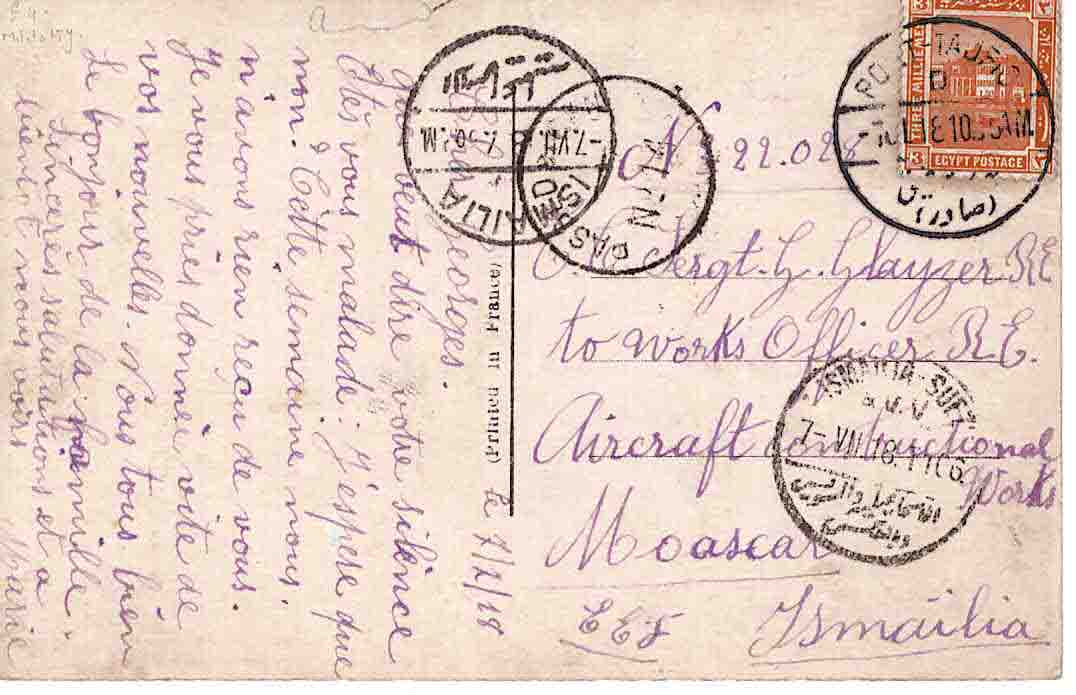 Le 7/7/18
Georges.
Que veut dire votre silence
Etes vous malade. J'espere que
non. Cette semaine nous
n'avons rien reçu de vous.
Je vous pries donne vite de
vos nouvelles. Nous tous bien
Le bonjour de la famille.
Sincères salutations et a
bientôt nous voirs
Marie
(Printed in France)
Nº 22.028
Sergt. G. Glayzer RE
to Works Officer R.E.
Aircraft constructional
Works
Moascar
EEF Ismailia
THREE MILLIEMES
EGYPT POSTAGE
3
PORT-TAUFIQ
D
10.35AM
(صادر)
ISMAILIA
D
-7.VII. 7.30P.M.
PAS
7-VII 18.11